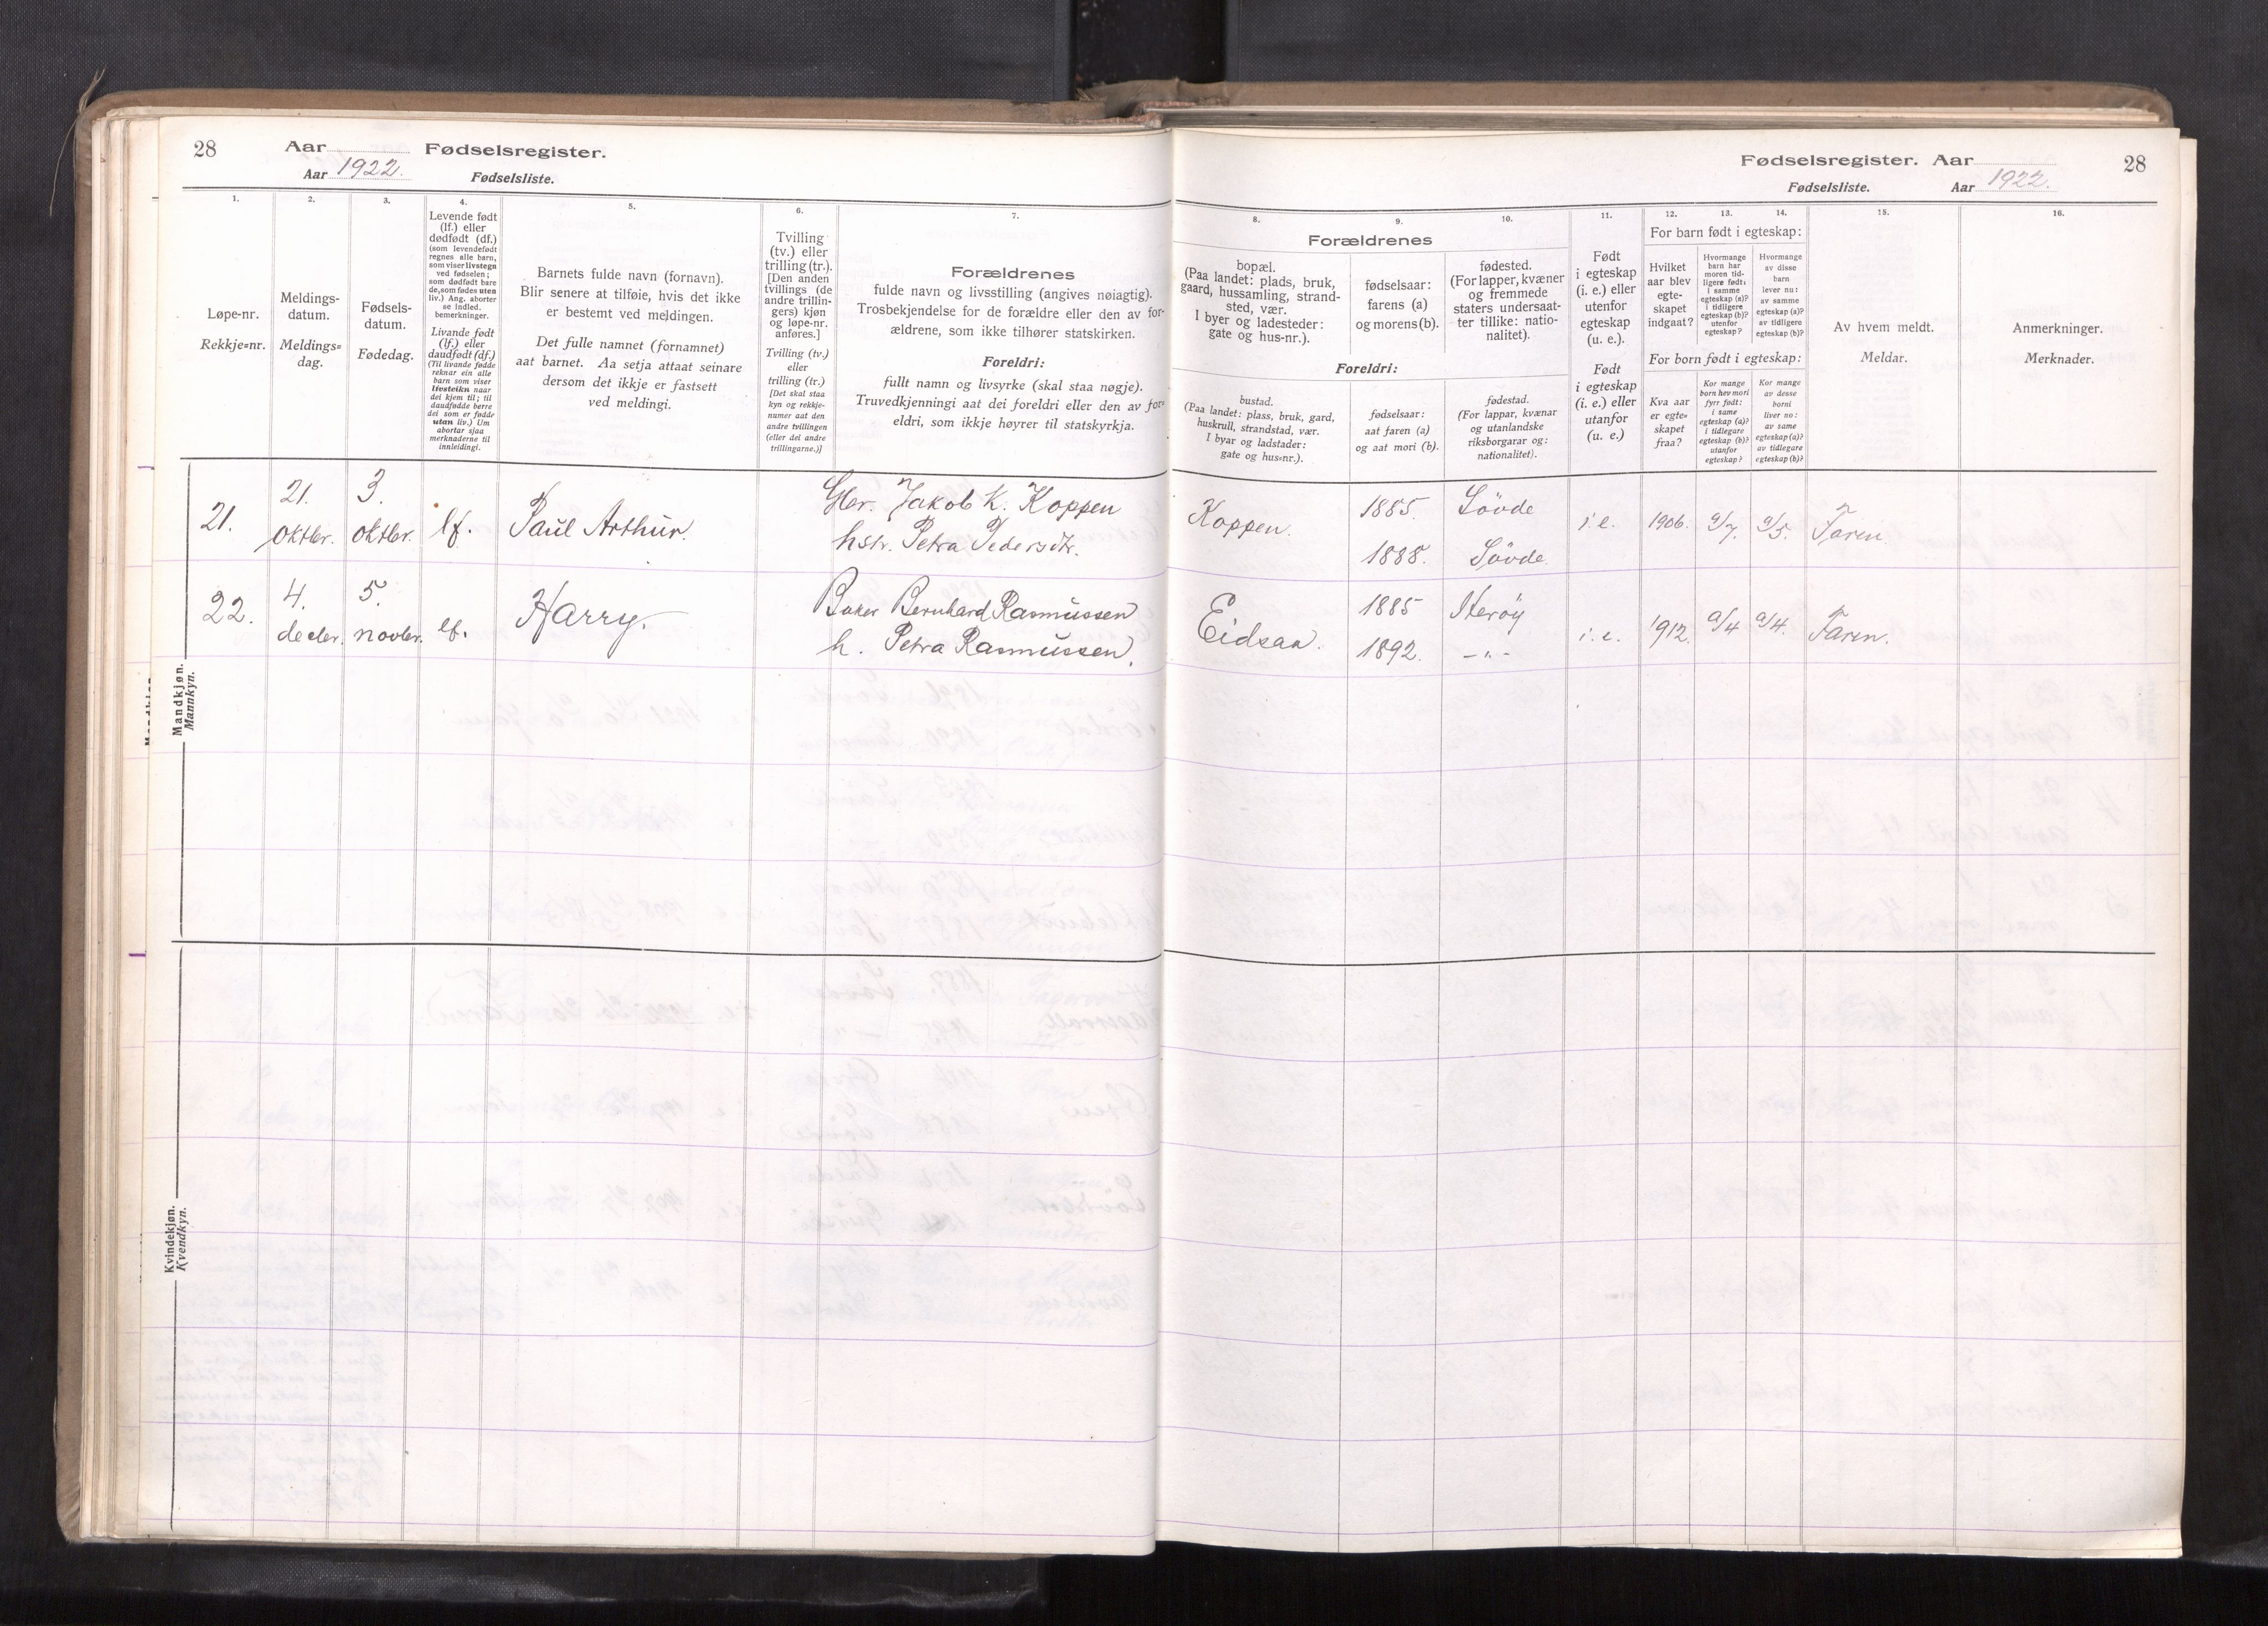 28 Aar Fødselsregister.
Aar 1922. Fødselsliste.
Fødselsregister. Aar 28
Fødselsliste. Aar 1922.
1.
Løpe-nr.
Rekkje-nr.
2.
Meldings-
datum.
Meldings-
dag.
3.
Fødsels-
datum.
Fødedag.
4.
Levende født
(lf.) eller
dødfødt (df.)
(som levendefødt
regnes alle barn,
som viser livstegn
ved fødselen;
som dødfødt bare
de, som fødes uten
liv.) Ang. aborter
se indled.
bemerkninger.
Livande født
(lf.) eller
daudfødt (df.)
(Til livande fødde
reknar ein alle
barn som viser
livsteikn naar
dei kjem til; til
daudfødde berre
dei som er fødde
utan liv.) Um
abortar sjaa
merknaderne til
innleidingi.
5.
Barnets fulde navn (fornavn).
Blir senere at tilføie, hvis det ikke
er bestemt ved meldingen.
Det fulle namnet (fornamnet)
aat barnet. Aa setja attaat seinare
dersom det ikkje er fastsett
ved meldingi.
6.
Tvilling
(tv.) eller
trilling (tr.).
[Den anden
tvillings (de
andre trillin-
gers) kjøn
og løpe-nr.
anføres.]
Tvilling (tv.)
eller
trilling (tr.)
[Det skal staa
kyn og rekkje-
numer aat den
andre tvillingen
(eller dei andre
trillingarne.)]
7.
Forældrenes
fulde navn og livsstilling (angives nøiagtig).
Trosbekjendelse for de forældre eller den av for-
ældrene, som ikke tilhører statskirken.
Foreldri:
fullt namn og livsyrke (skal staa nøgje).
Truvedkjenningi aat dei foreldri eller den av for-
eldri, som ikkje høyrer til statskyrkja.
Forældrenes
8.
bopæl.
(Paa landet: plads, bruk,
gaard, hussamling, strand-
sted, vær.
I byer og ladesteder:
gate og hus-nr.).
9.
fødselsaar:
farens (a)
og morens (b).
10.
fødested.
(For lapper, kvæner
og fremmede
staters undersaat-
ter tillike: natio-
nalitet).
Foreldri:
bustad.
(Paa landet: plass, bruk, gard,
huskrull, strandstad, vær.
I byar og ladstader:
gate og hus-nr.).
fødselsaar:
aat faren (a)
og aat mori (b).
fødestad.
(For lappar, kvænar
og utanlandske
riksborgarar og:
nationalitet).
11.
Født
i egteskap
(i. e.) eller
utenfor
egteskap
(u. e.).
Født
i egteskap
(i. e.) eller
utanfor
(u. e.)
For barn født i egteskap:
12.
Hvilket
aar blev
egte-
skapet
indgaat?
13.
Hvormange
barn har
moren tid-
ligere født:
i samme
egteskap (a)?
i tidligere
egteskap (b)?
utenfor
egteskap?
14.
Hvormange
av disse
barn
lever nu:
av samme
egteskap (a)?
av tidligere
egteskap (b)?
For born født i egteskap:
Kva aar
er egte-
skapet
fraa?
Kor mange
born hev mori
fyrr født:
i same
egteskap (a)?
i tidlegare
egteskap (b)?
utanfor
egteskap?
Kor mange
av desse
borni
liver no:
av same
egteskap (a)?
av tidlegare
egteskap (b)?
15.
Av hvem meldt.
Meldar.
16.
Anmerkninger.
Merknader.
Mandkjøn.
Mannkyn.
21. 21. oktbr. 3. oktbr. lf. Paul Arthur. Gbr. Jakob K. Koppen Koppen. 1885. Søvde i. e. 1906. a/7. a/5. Faren.
hstr. Petra Pedersdtr. 1888. Søvde
22. 4. decbr. 5. novbr. lf. Harry. Baker Bernhard Rasmussen Eidsaa. 1885 Herøy i. e. 1912. a/4 a/4. Faren.
h. Petra Rasmussen. 1892. –"–
Kvindekjøn.
Kvendkyn.